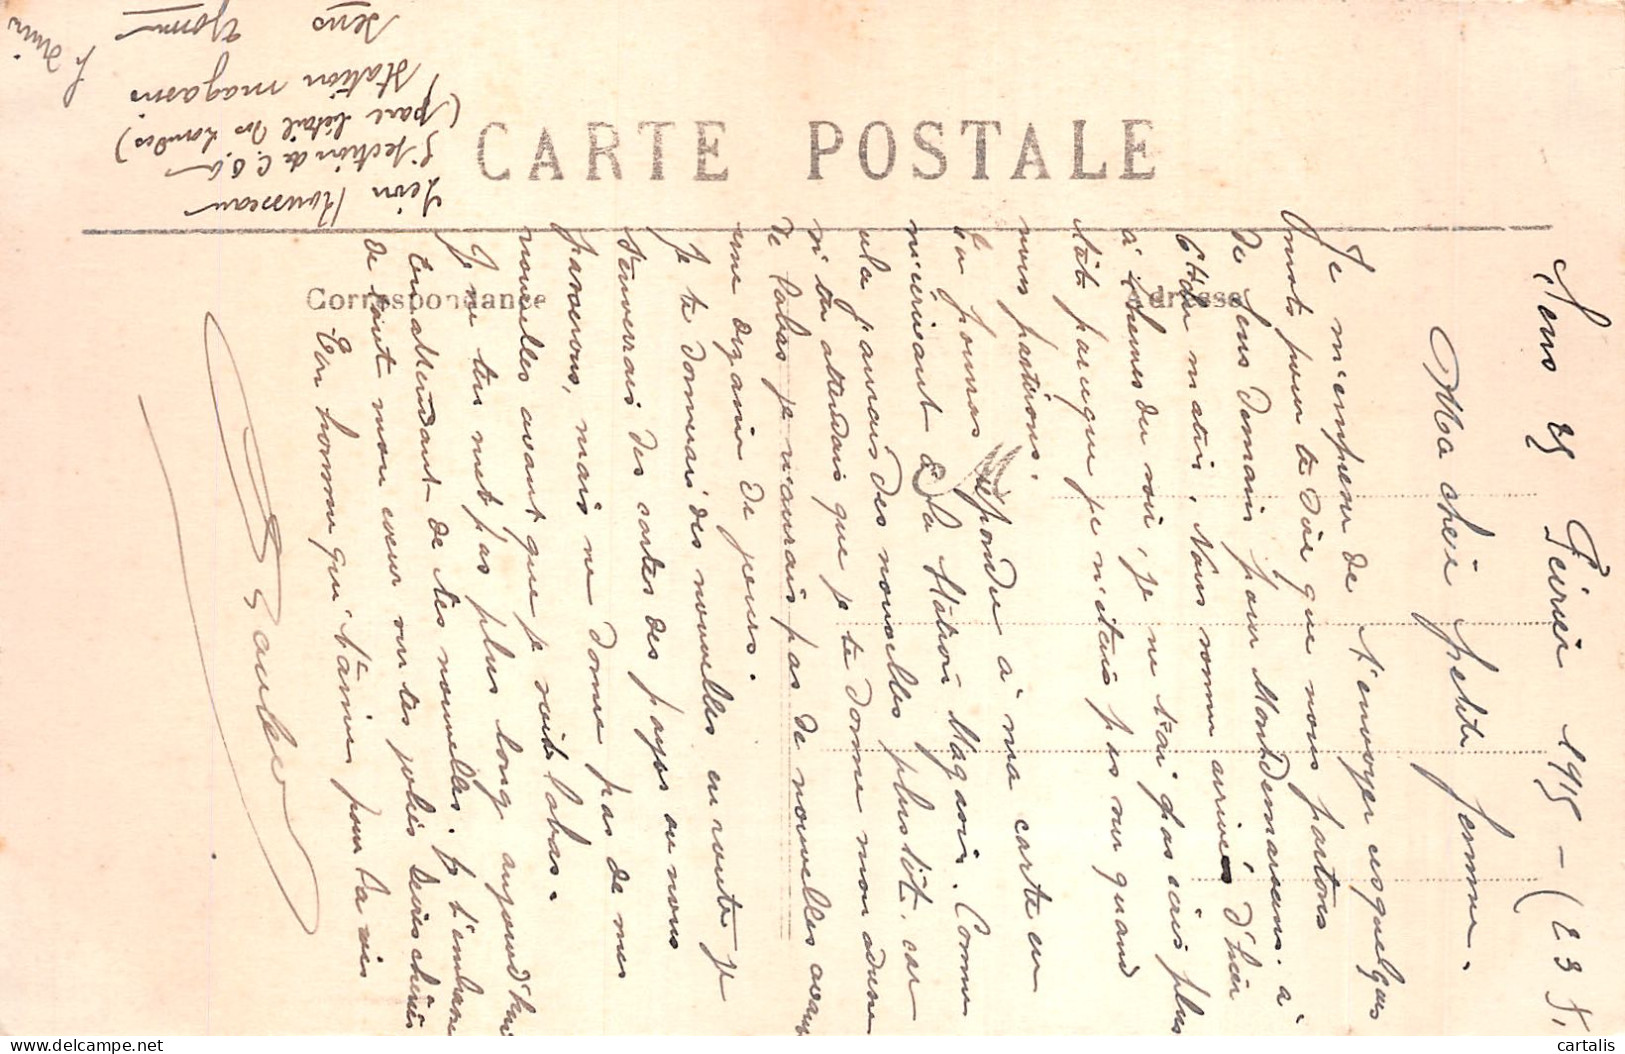 CARTE POSTALE
Correspondance
Adresse
Sens 25 Février 1915 - (
Ma chérie petite femme.
Je m'empresse de t'envoyer usquelques
mots pour te dire que nous partons
de Sens demain pour Mont à
matin. Nous somm arrivés d'hier
à heures du soir, je ne t'ai pas écris plus
tôt parceque je n'étais pas sur quand
nous partions.
Tu pourras répondu à ma carte en
m'écrivant à la Station Magasin. Comme
cela j'aurais des nouvelles plus tôt. car
si tu attendais que je te donne mon adresse
de labas je n'aurais pas de nouvelles avant
une dizaine de jours.
Je te donnerai des nouvelles en route je
t'enverrais des cartes des pays ou nous
passerons, mais ne donne pas de mes
nouvelles avant que je sois labas.
Je ne ten met pas plus long aujourd'hui
en attendant de tes nouvelles. Je t'embrasse
de tout mon cœur sur tes jolies chéries
Ton homme qui t'aime pour la vie
Léon Rousseau
Section de C.O.A
(parc bétail)
Station magasin
Sens Yonne
cartalis